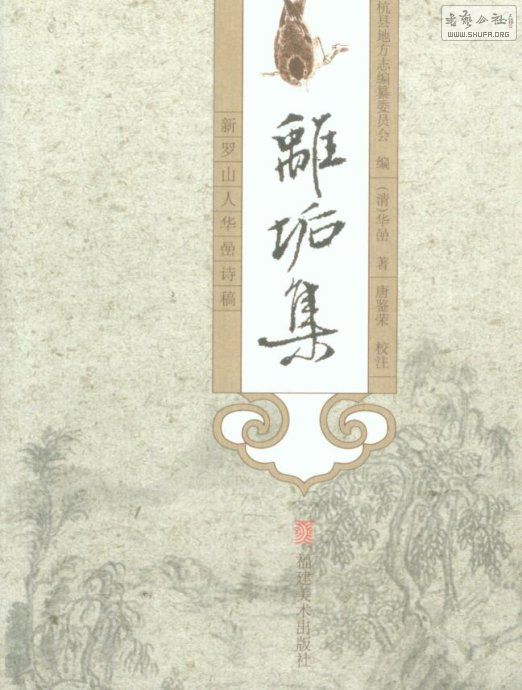 離垢集
新罗山人华喦诗稿
杭县地方志编纂委员会 编
(清)华喦 著
唐鉴荣 校注
福建美术出版社
書藝公社
WWW.SHUFA.ORG